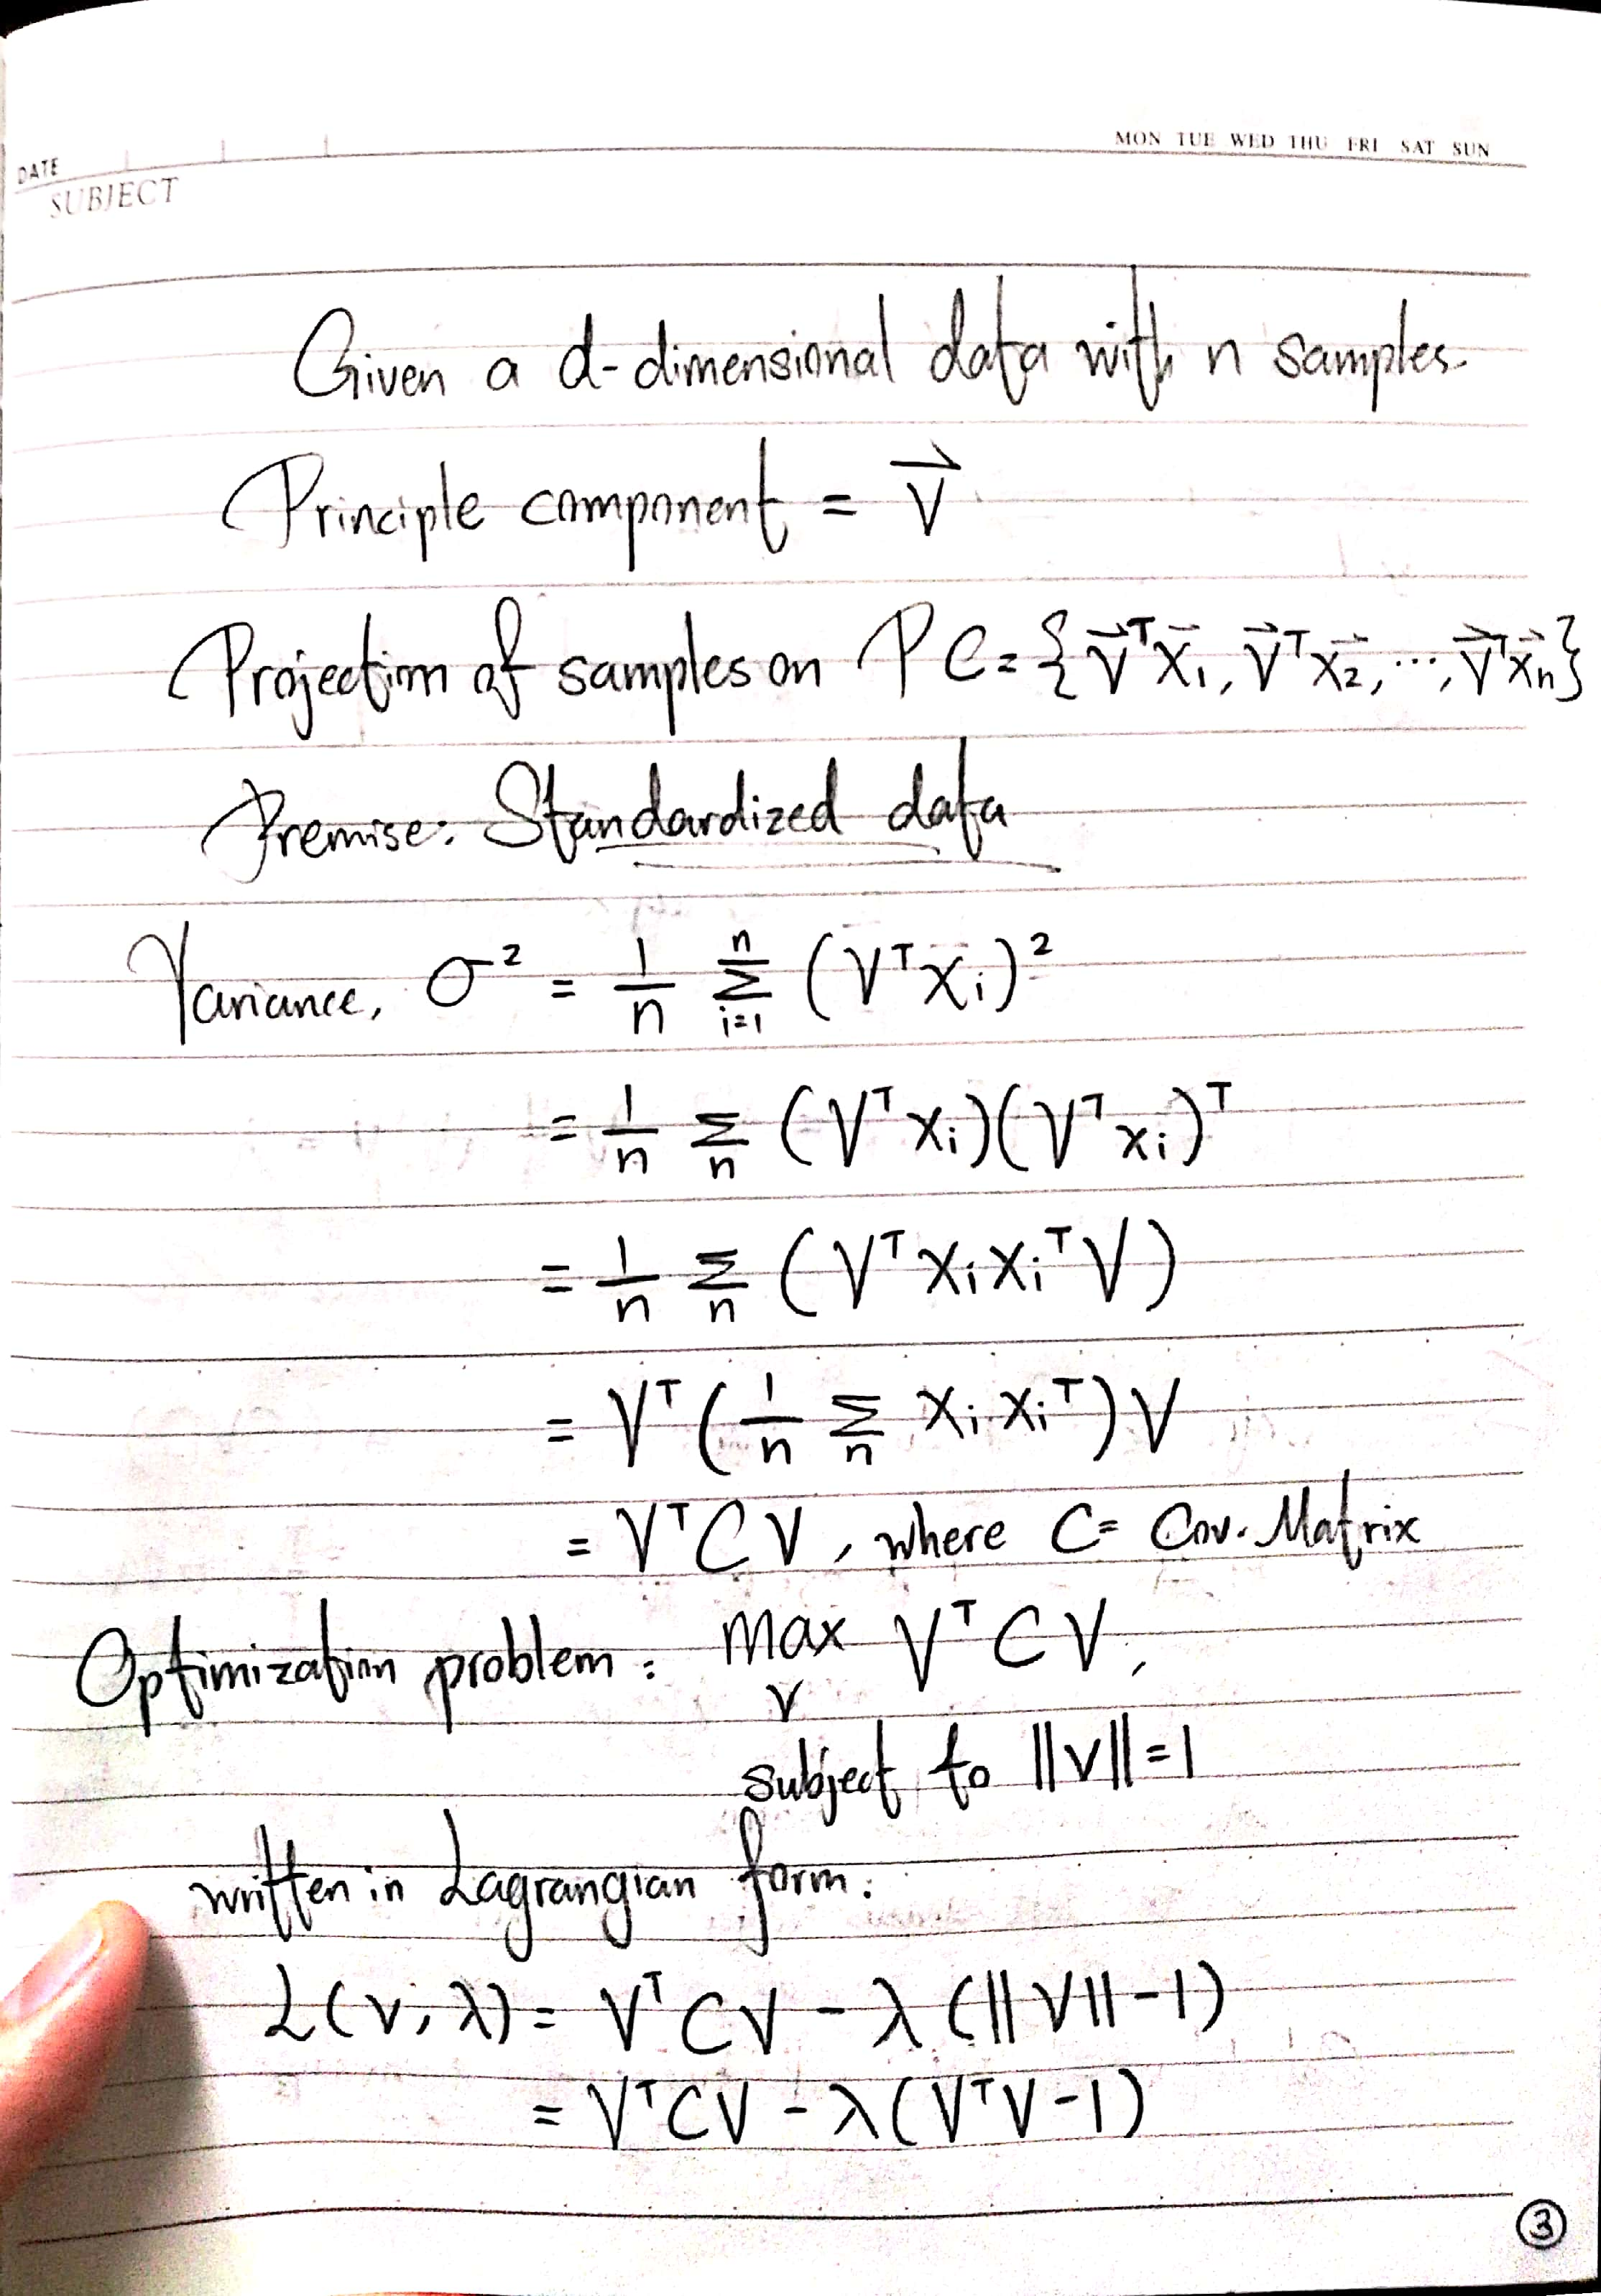 MON TUE WED THU FRI SAT SUN
DATE
SUBJECT
Given a d-dimensional data with n samples.
Principle component = v⃗
Projection of samples on PC = {v⃗ᵀx⃗₁, v⃗ᵀx⃗₂, ..., v⃗ᵀx⃗ₙ}
Premise: Standardized data
Variance, σ² = 1/n Σᵢ₌₁ⁿ (Vᵀxᵢ)²
= 1/n Σₙ (Vᵀxᵢ)(Vᵀxᵢ)ᵀ
= 1/n Σₙ (VᵀxᵢxᵢᵀV)
= Vᵀ(1/n Σₙ xᵢxᵢᵀ)V
= VᵀCV, where C = Cov. Matrix
Optimization problem: max VᵀCV,
v
subject to ||v||=1
written in Lagrangian form:
L(v, λ) = VᵀCV - λ(||V||-1)
= VᵀCV - λ(VᵀV-1)
③